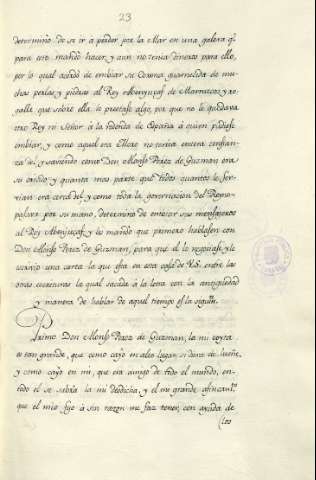 23
determinò de se ir a perder por la Mar en una galera qe.
para esto mandò hacer, y aun no tenia dinero para ello,
por lo qual acordò de embiar su Corona guarnecida de mu-
chas perlas, y piedras al Rey Abenjucaf de Marruecos, y ro-
galle que sobre ella le prestase algo, por que no le quedava
otro Rey ni Señor à la redonda de España à quien pudiese
embiar, y como aquel era Moro no tenia entera confian-
za del, y sabiendo como Don Alonso Perez de Guzman era
su criado y quanta mas parte que todos quantos le ser-
vian era cerca del, y como toda la governacion del Reyno
pasava por su mano, determinò de embiar sus mensajeros
al Rey Abenjucaf, y les mandò que primero hablasen con
Don Alonso Perez de Guzman, para que el lo negociase, y le
escrivio una carta la que esta en esta casa de V.S. entre las
otras escrituras la qual sacada à la letra con la antiguedad
y manera de hablar de aquel tiempo es la siguiente.
Primo Don Alonso Perez de Guzman, la mi coyta
es tan grande, que como cayò en alto lugar, se verà de lueñe,
y como cayò en mi, que era amigo de todo el mundo, en
todo el se sabrà la mi desdicha, y el mi grande
que el mio fijo à sin razon me faz tener, con ayuda de
los